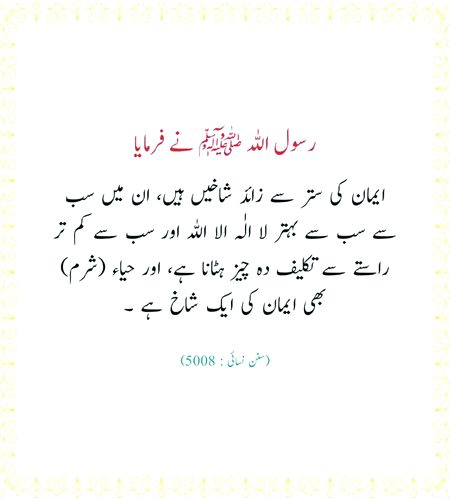 رسول اللہ ﷺ نے فرمایا
ایمان کی ستر سے زائد شاخیں ہیں، ان میں سب
سے سب سے بہتر لا الٰہ الا اللہ اور سب سے کم تر
راستے سے تکلیف دہ چیز ہٹانا ہے، اور حیاء (شرم)
بھی ایمان کی ایک شاخ ہے ۔
(سنن نسائی : 5008)